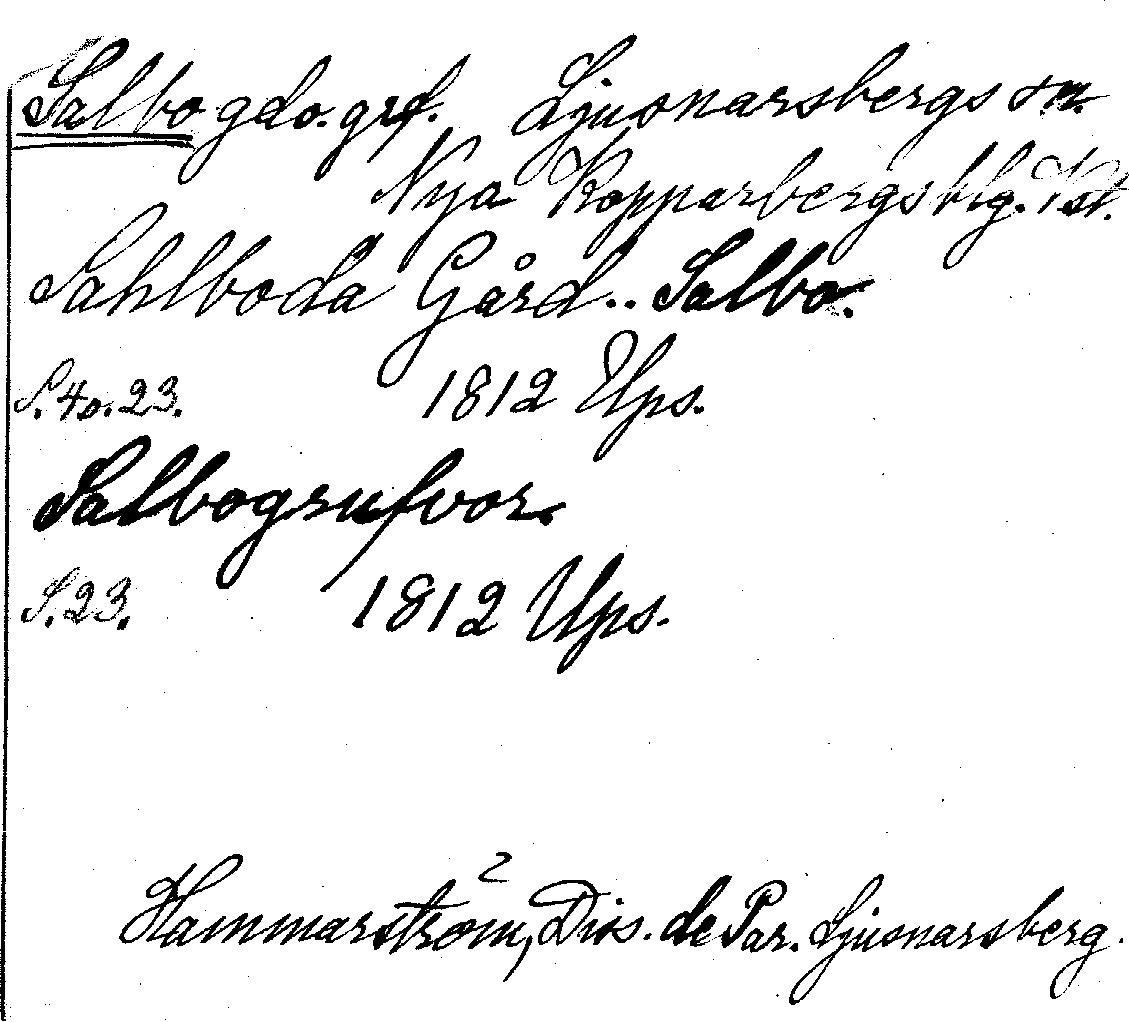 Salbo gdo. grf. Ljusnarsbergs sn.
Nya Kopparbergs blg. Vstl.
Sahlboda Gård.. Salbo.
S. 40. 23. 1812 Ups.
Salbogrufvor.
S. 23. 1812 Ups.
Hammarström, Diss. de Par. Ljusnarsberg.